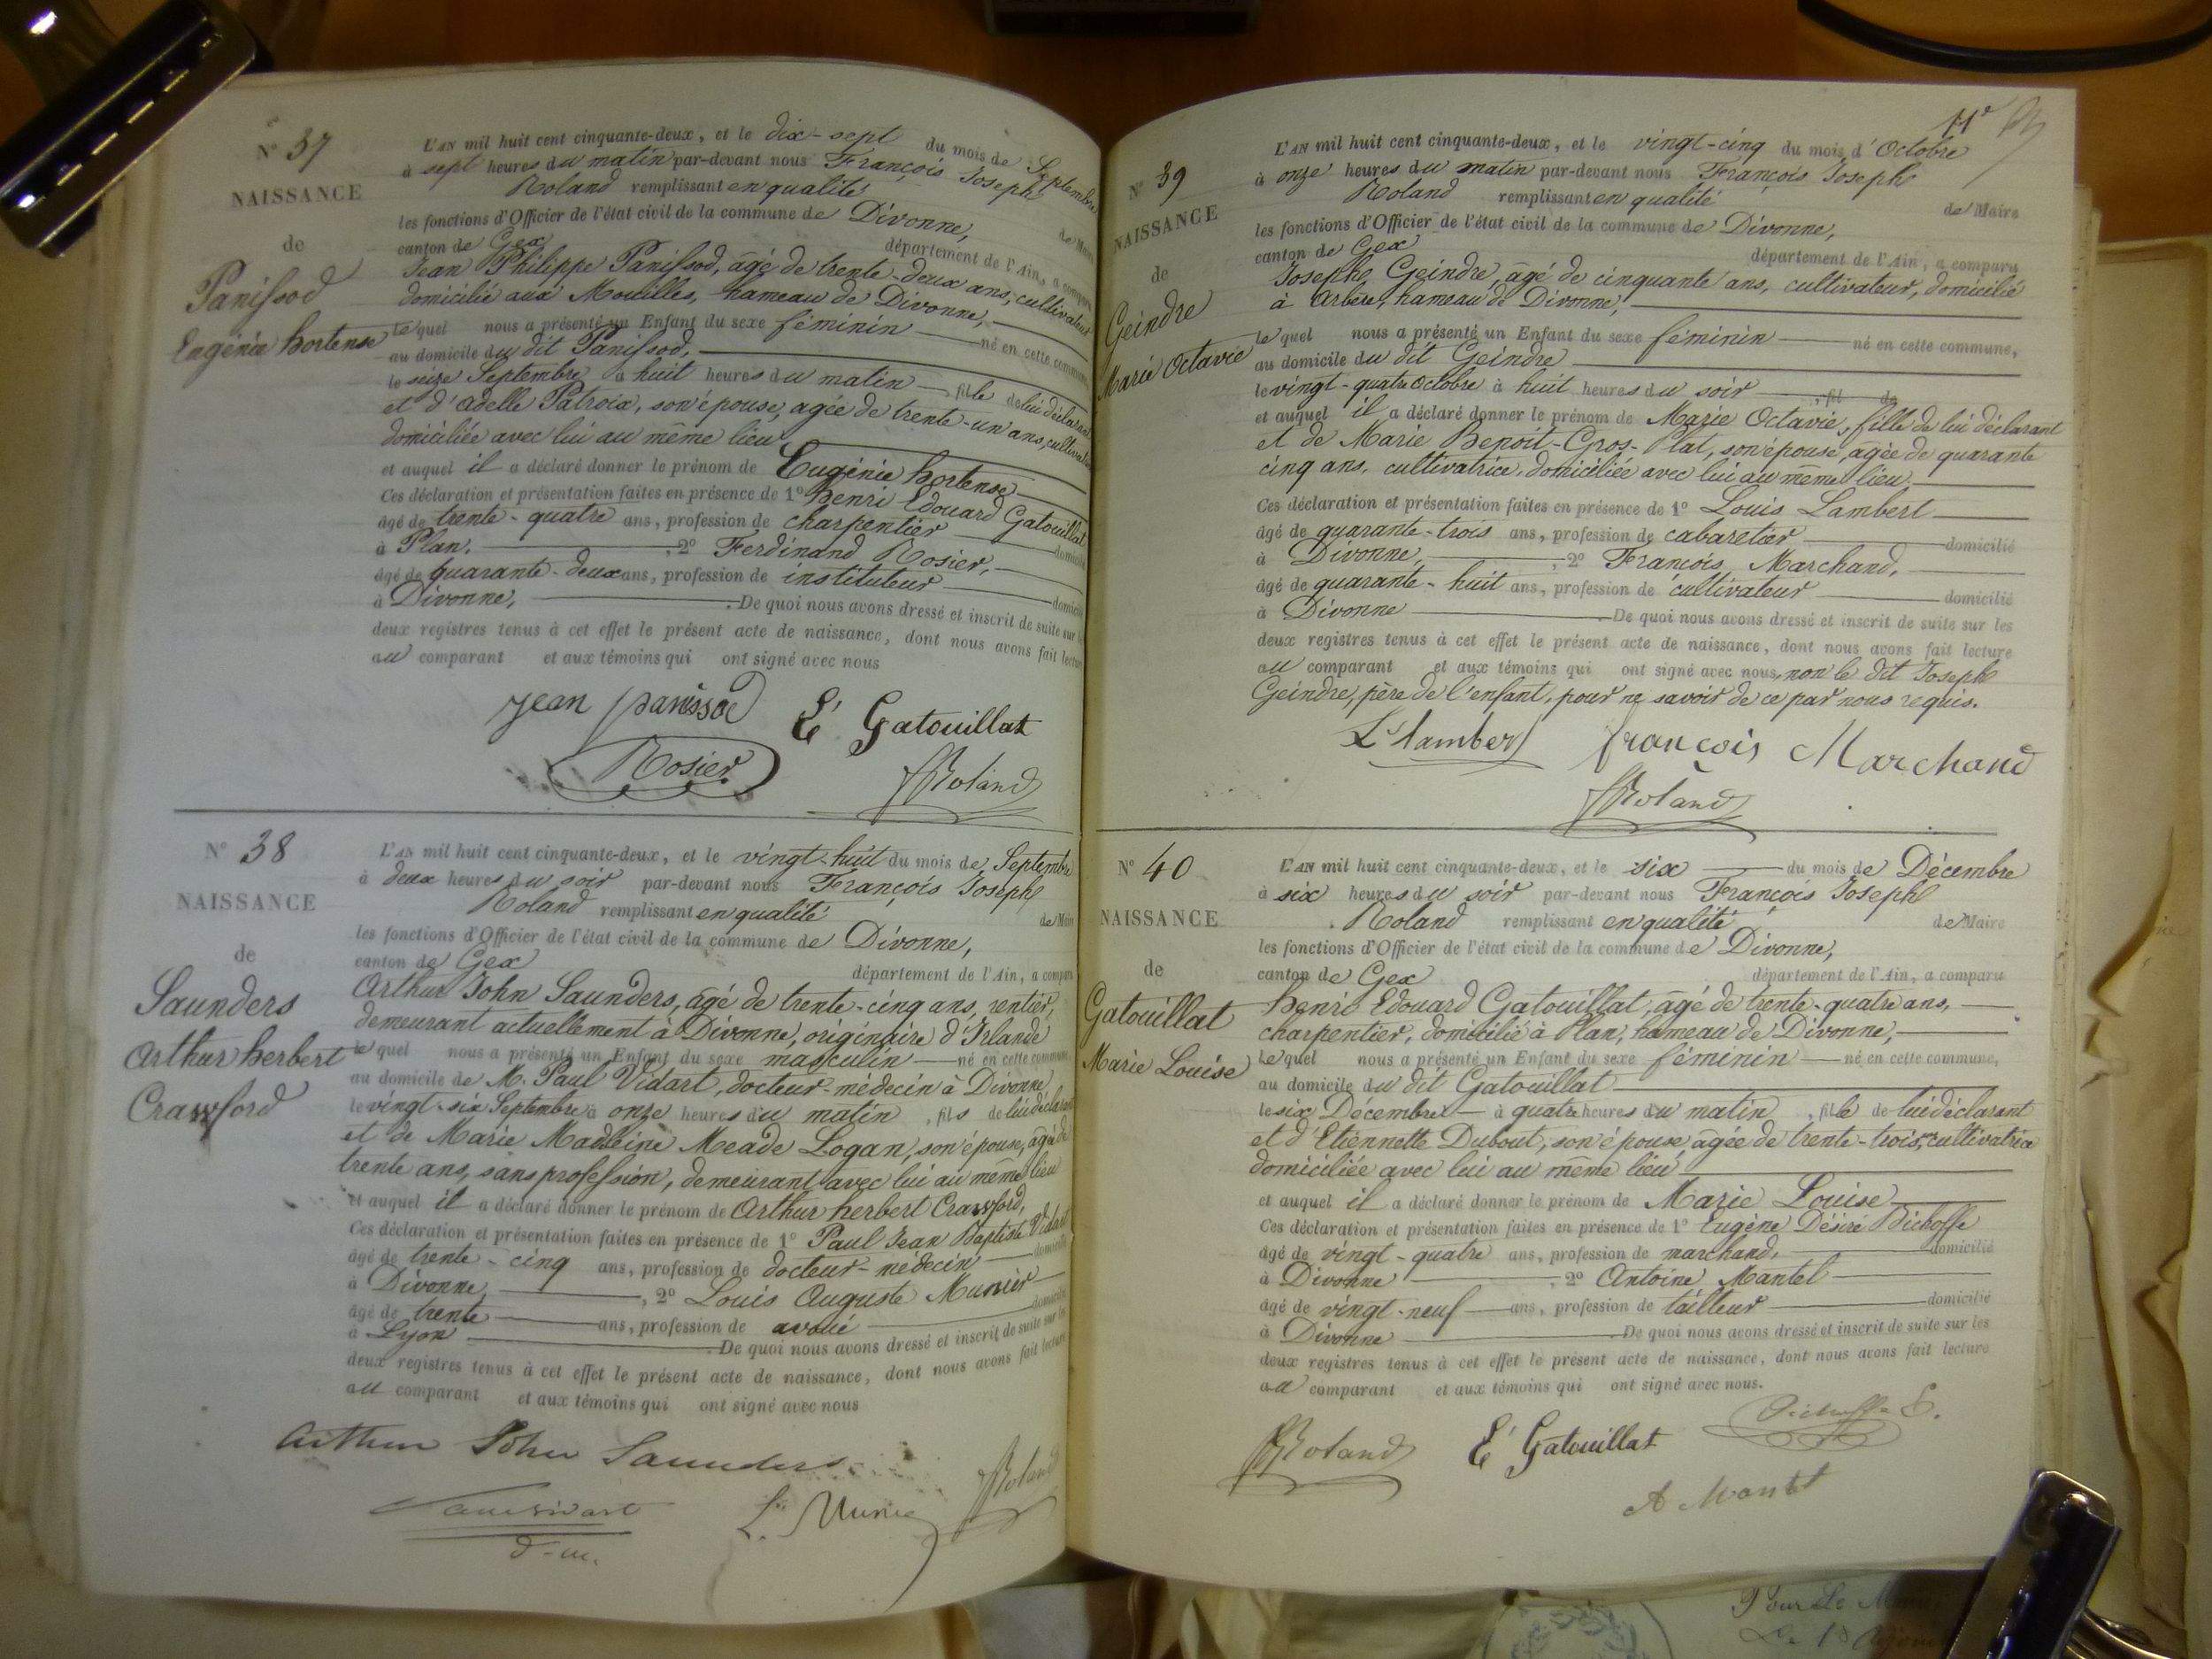 N° 37
NAISSANCE
de
Panissod
Eugénie hortense
L'AN mil huit cent cinquante-deux, et le dix-sept du mois de Septembre
à sept heures du matin par-devant nous François Joseph
Roland remplissant en qualité de Maire
les fonctions d'Officier de l'état civil de la commune de Divonne,
canton de Gex département de l'Ain, a comparu
Jean Philippe Panissod, âgé de trente-deux ans, cultivateur
domicilié aux Mouilles, hameau de Divonne,
lequel nous a présenté un Enfant du sexe féminin né en cette commune
au domicile du dit Panissod,
le seize Septembre à huit heures du matin fille de lui déclarant
et d'adelle Patroix, son épouse, agée de trente-un ans, cultivatrice
domiciliée avec lui au même lieu
et auquel il a déclaré donner le prénom de Eugénie hortense
Ces déclaration et présentation faites en présence de 1° henri Edouard Gatouillat
âgé de trente-quatre ans, profession de charpentier domicilié
à Plan, 2° Ferdinand Rosier,
âgé de quarante-deux ans, profession de instituteur domicilié
à Divonne, De quoi nous avons dressé et inscrit de suite sur les
deux registres tenus à cet effet le présent acte de naissance, dont nous avons fait lecture
au comparant et aux témoins qui ont signé avec nous
Jean panissod E' Gatouillat
Rosier Roland
N° 38
NAISSANCE
de
Saunders
Arthur herbert
Crawford
L'AN mil huit cent cinquante-deux, et le vingt-huit du mois de Septembre
à deux heures du soir par-devant nous François Joseph
Roland remplissant en qualité de Maire
les fonctions d'Officier de l'état civil de la commune de Divonne,
canton de Gex département de l'Ain, a comparu
Arthur John Saunders, âgé de trente-cinq ans, rentier,
demeurant actuellement à Divonne, originaire d'Irlande
lequel nous a présenté un Enfant du sexe masculin né en cette commune
au domicile de M. Paul Vidart, docteur-médecin à Divonne
le vingt-six Septembre à onze heures du matin, fils de lui déclarant
et de Marie Madeleine Meade Logan, son épouse, agée de
trente ans, sans profession, demeurant avec lui au même lieu
et auquel il a déclaré donner le prénom de Arthur herbert Crawford,
Ces déclaration et présentation faites en présence de 1° Paul Jean Baptiste Vidart
âgé de trente-cinq ans, profession de docteur-médecin domicilié
à Divonne, 2° Louis Auguste Munier
âgé de trente ans, profession de avoué domicilié
à Lyon De quoi nous avons dressé et inscrit de suite sur les
deux registres tenus à cet effet le présent acte de naissance, dont nous avons fait lecture
au comparant et aux témoins qui ont signé avec nous
Arthur John Saunders Roland
Paul Vidart
d-m.
11e
N° 39
NAISSANCE
de
Geindre
Marie Octavie
L'AN mil huit cent cinquante-deux, et le vingt-cinq du mois d'Octobre
à onze heures du matin par-devant nous François Joseph
Roland remplissant en qualité de Maire
les fonctions d'Officier de l'état civil de la commune de Divonne,
canton de Gex département de l'Ain, a comparu
Joseph Geindre, âgé de cinquante ans, cultivateur, domicilié
à Arbère, hameau de Divonne,
lequel nous a présenté un Enfant du sexe féminin né en cette commune,
au domicile du dit Geindre
le vingt-quatre Octobre à huit heures du soir, fil de
et auquel il a déclaré donner le prénom de Marie Octavie, fille de lui déclarant
et de Marie Benoit-Gros-Plat, son épouse, agée de quarante
cinq ans, cultivatrice, domiciliée avec lui au même lieu
Ces déclaration et présentation faites en présence de 1° Louis Lambert
âgé de quarante-trois ans, profession de cabaretier domicilié
à Divonne, 2° François Marchand,
âgé de quarante-huit ans, profession de cultivateur domicilié
à Divonne De quoi nous avons dressé et inscrit de suite sur les
deux registres tenus à cet effet le présent acte de naissance, dont nous avons fait lecture
au comparant et aux témoins qui ont signé avec nous, non le dit Joseph
Geindre, père de l'enfant, pour ne savoir de ce par nous requis.
Ls lambert françois Marchand
Roland
N° 40
NAISSANCE
de
Gatouillat
Marie Louise
L'AN mil huit cent cinquante-deux, et le six du mois de Décembre
à six heures du soir par-devant nous François Joseph
Roland remplissant en qualité de Maire
les fonctions d'Officier de l'état civil de la commune de Divonne,
canton de Gex département de l'Ain, a comparu
henri Edouard Gatouillat, âgé de trente-quatre ans,
charpentier, domicilié à Plan, hameau de Divonne,
lequel nous a présenté un Enfant du sexe féminin né en cette commune,
au domicile du dit Gatouillat
le six Décembre à quatre heures du matin, fille de lui déclarant
et d'Etiennette Dubout, son épouse, agée de trente-trois, cultivatrice
domiciliée avec lui au même lieu
et auquel il a déclaré donner le prénom de Marie Louise
Ces déclaration et présentation faites en présence de 1° Eugène Désiré Bichoffe
âgé de vingt-quatre ans, profession de marchand, domicilié
à Divonne, 2° Antoine Mantel
âgé de vingt-neuf ans, profession de tailleur domicilié
à Divonne De quoi nous avons dressé et inscrit de suite sur les
deux registres tenus à cet effet le présent acte de naissance, dont nous avons fait lecture
au comparant et aux témoins qui ont signé avec nous.
Roland E' Gatouillat Bichoffe E.
A Mantel
Pour le